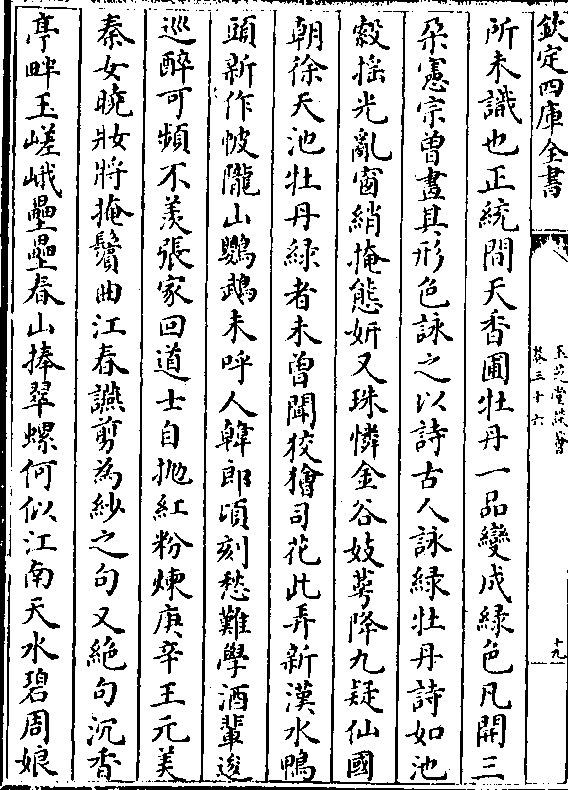 欽定四庫全書
玉芝堂談薈
卷三十六
十九
所未識也正統間天香圃牡丹一品變成綠色凡開三
朶憲宗曾畫其形色詠之以詩古人詠綠牡丹詩如池
縠搖光亂窗綃掩態妍又珠憐金谷妓萼降九疑仙國
朝徐天池牡丹綠者未曾聞狡獪司花此弄新漢水鴨
頭新作帔隴山鸚鵡未呼人韓郎頃刻愁難學酒輩逡
巡醉可頻不羨張家回道士自拋紅粉煉庚辛王元美
秦女曉妝將掩鬢曲江春讌剪為紗之句又絶句沉香
亭畔玉嵯峨壘壘春山捧翠螺何似江南天水碧周娘